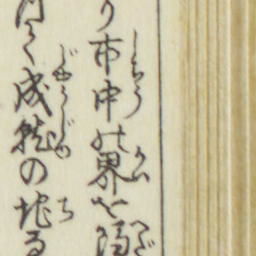 り市中の界を隔
しちう かい へだ
く成就の地な
じやうじゆ ち